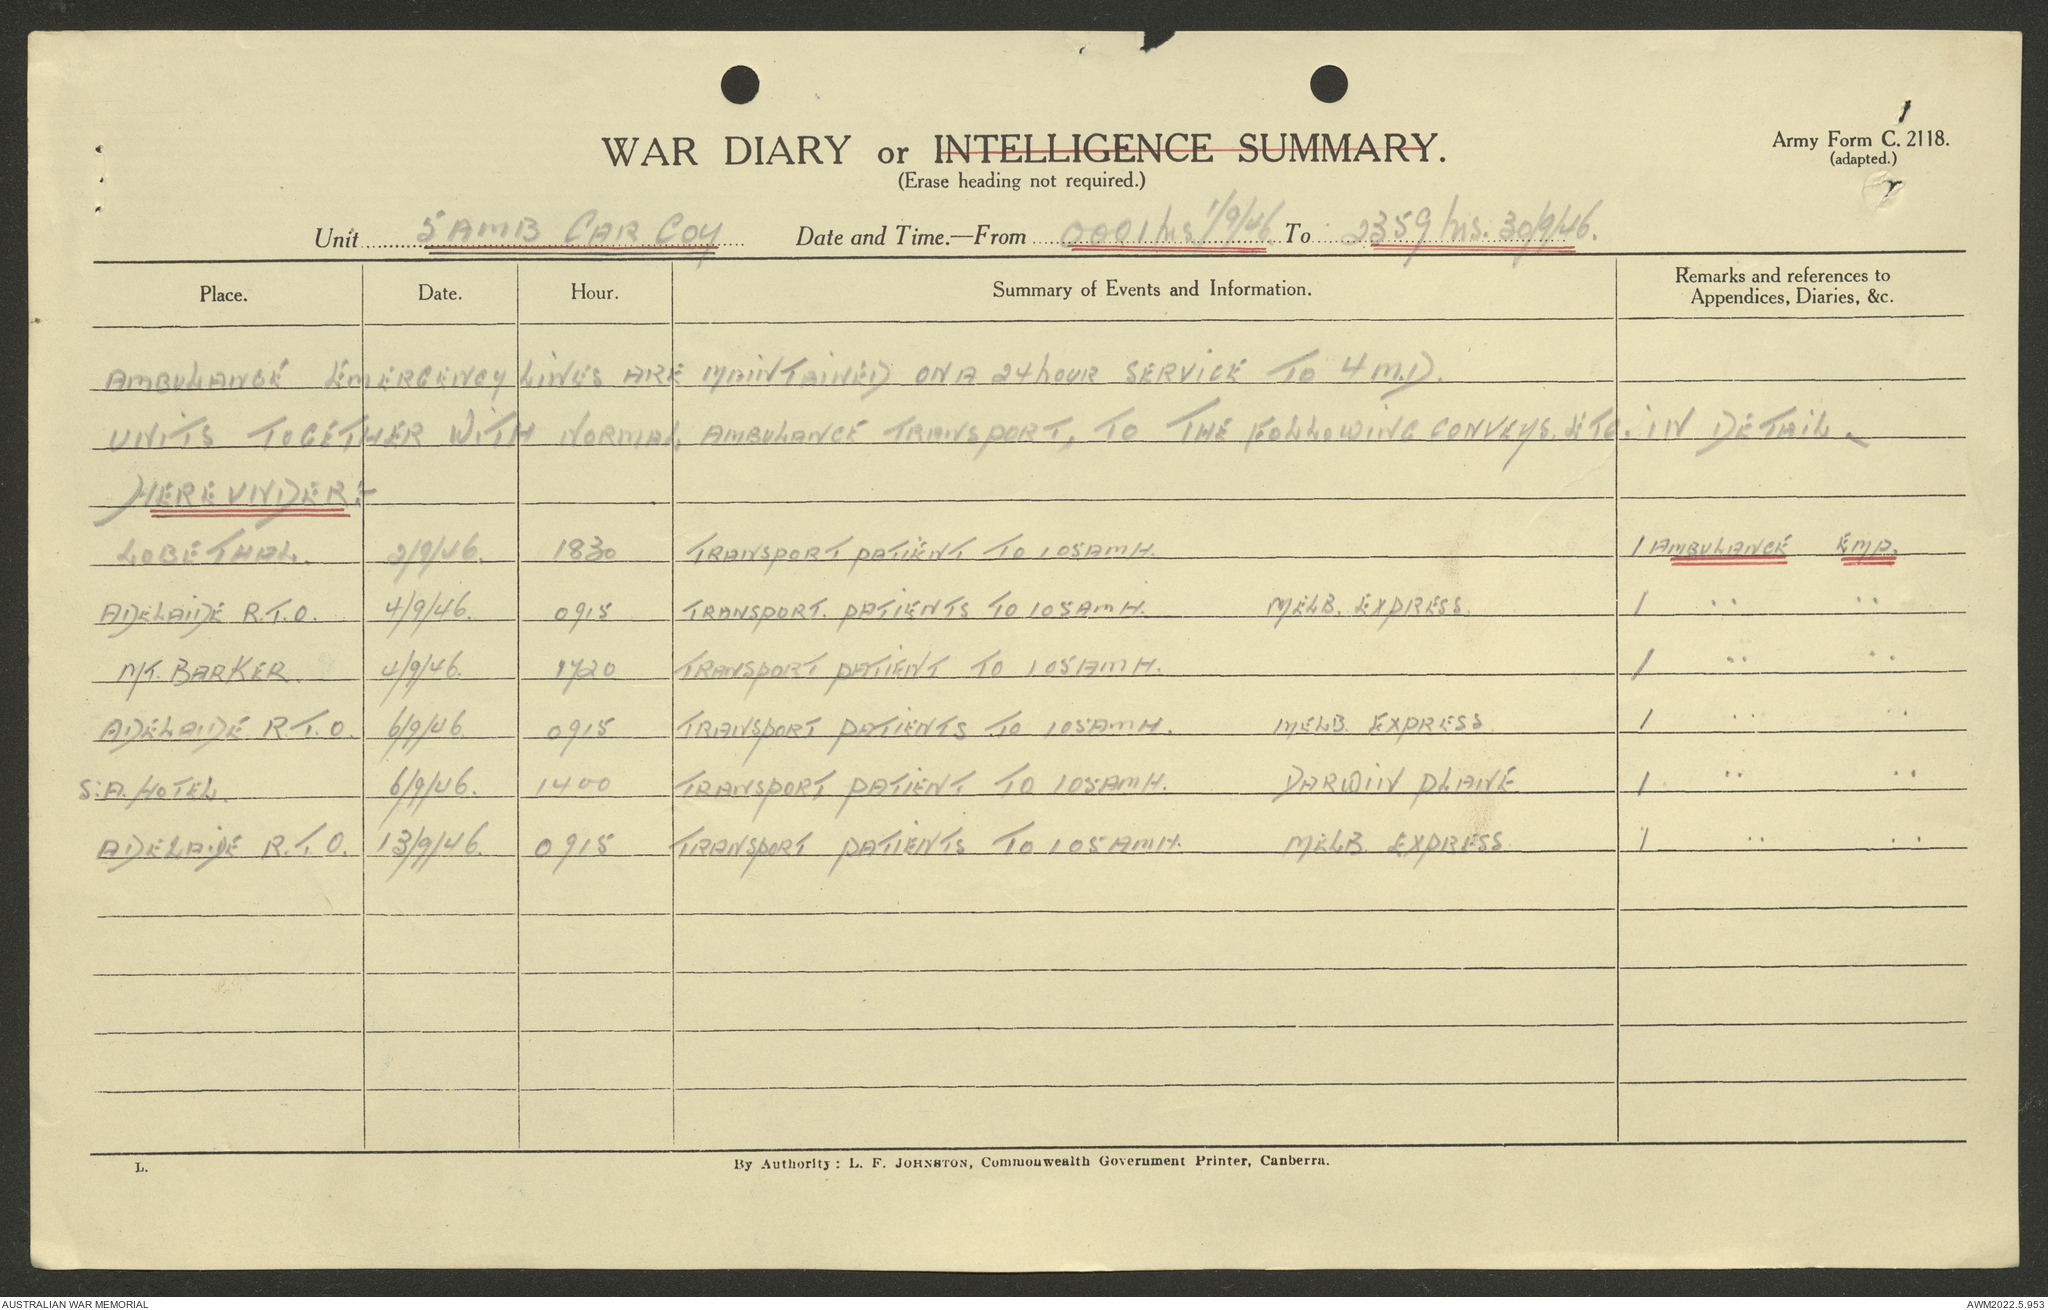 WAR DIARY or INTELLIGENCE SUMMARY.
Army Form C. 2118.
(adapted.)
(Erase heading not required.)
Unit 5 AMB CAR COY Date and Time.—From 0001hrs 1/9/46. To 2359 hrs. 30/9/46.
Place. Date. Hour. Summary of Events and Information. Remarks and references to
Appendices, Diaries, &c.
AMBULANCE EMERGENCY LINES ARE MAINTAINED ON A 24 hOUR SERVICE TO 4 M.D.
UNITS TOGETHER WITH NORMAL AMBULANCE TRANSPORT, TO THE FOLLOWING CONVEYS. ETC. IN DETAIL -
HEREUNDER:-
LOBETHAL. 2/9/46. 1830 TRANSPORT PATIENT TO 105AMH. 1 AMBULANCE EMP.
ADELAIDE R.T.O. 4/9/46. 0915 TRANSPORT. PATIENTS TO 105AMH. MELB. EXPRESS. 1 " "
MT. BARKER. 4/9/46. 1720 TRANSPORT PATIENT TO 105AMH. 1 " "
ADELAIDE R.T.O. 6/9/46. 0915 TRANSPORT PATIENTS TO 105AMH. MELB. EXPRESS. 1 " "
S.A. HOTEL. 6/9/46. 1400 TRANSPORT PATIENT TO 105AMH. DARWIN PLANE 1 " "
ADELAIDE R.T.O. 13/9/46. 0915 TRANSPORT PATIENTS TO 105AMH. MELB. EXPRESS. 1 " "
L. By Authority: L. F. JOHNSTON, Commonwealth Government Printer, Canberra.
AUSTRALIAN WAR MEMORIAL AWM2022.5.953